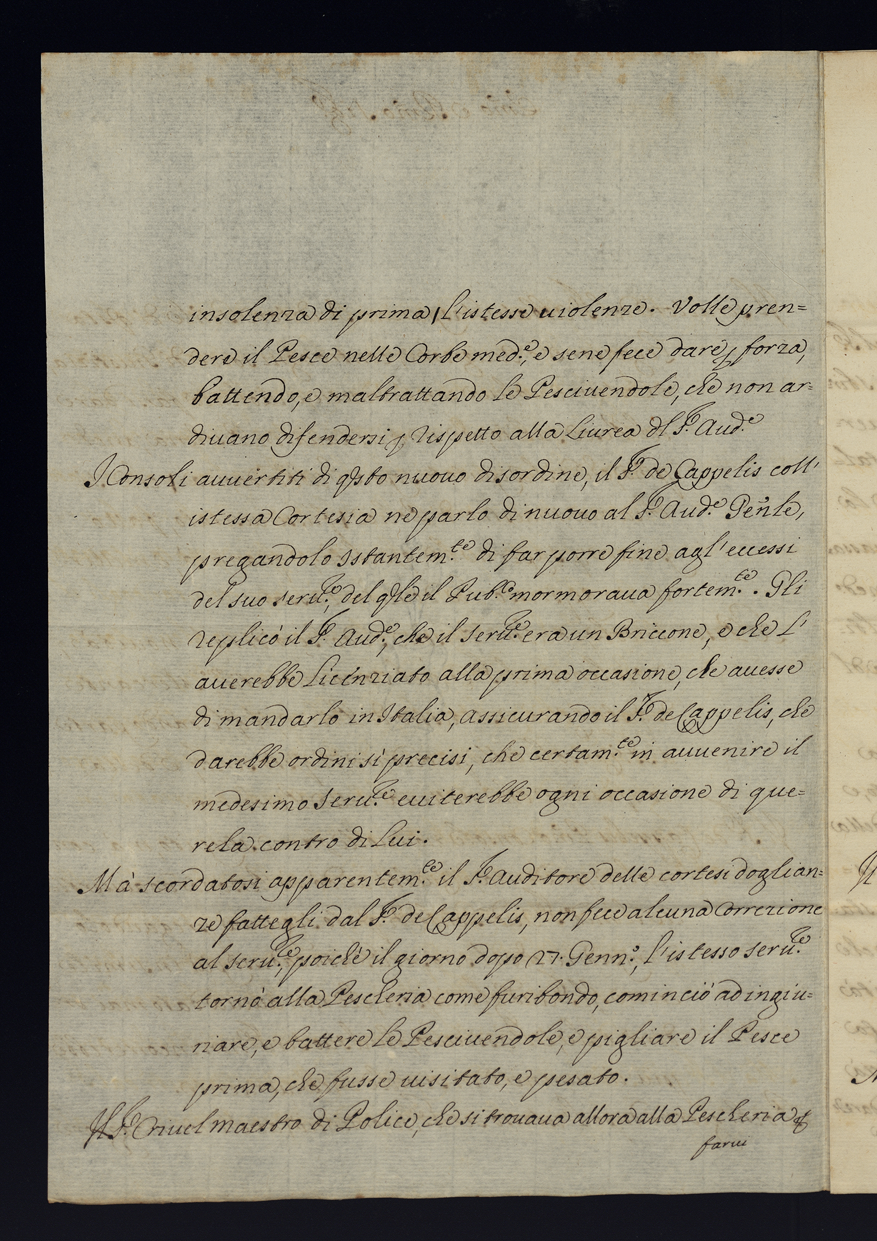 insolenza di prima, l'istesse uiolenze. Volle pren=
dere il Pesce nelle Corbe med.e, e se ne fece dare p forza,
battendo, e maltrattando le Pesciuendole, che non ar=
diuano difendersi p rispetto alla Liurea dl S.r Aud.e
I Consoli auuertiti di qsto nuouo disordine, il S.r de Cappelis coll'
istessa Cortesia ne parlo di nuouo al S.r Aud.e Gen̄le,
pregandolo istantem.te di far porre fine agl' eccessi
del suo seru.re, del qle il Pub.co mormoraua fortem.te. Gli
replicò il S.r Aud.e, che il seru.re era un Briccone, e che L'
auerebbe Licenziato alla prima occasione, che auesse
di mandarlo in Italia, assicurando il S.r de Cappelis, che
darebbe ordini sì precisi, che certam.te in auuenire il
medesimo Seru.re euiterebbe ogni occasione di que=
rela contro di Lui.
Mà scordatosi apparentem.te il S.r Auditore delle cortesi doglian=
ze fattegli dal S.r de Cappelis, non fece alcuna Correzione
al seru.re, poiche il giorno dopo 27. Genn.o, l'istesso seru.re
tornò alla Pescheria come furibondo, cominciò ad ingiu=
riare, e battere le Pesciuendole, e pigliare il Pesce
prima, che fusse uisitato, e pesato.
Il S.r Criuel maestro di Police, che si trouaua allora alla Pescheria p
farui